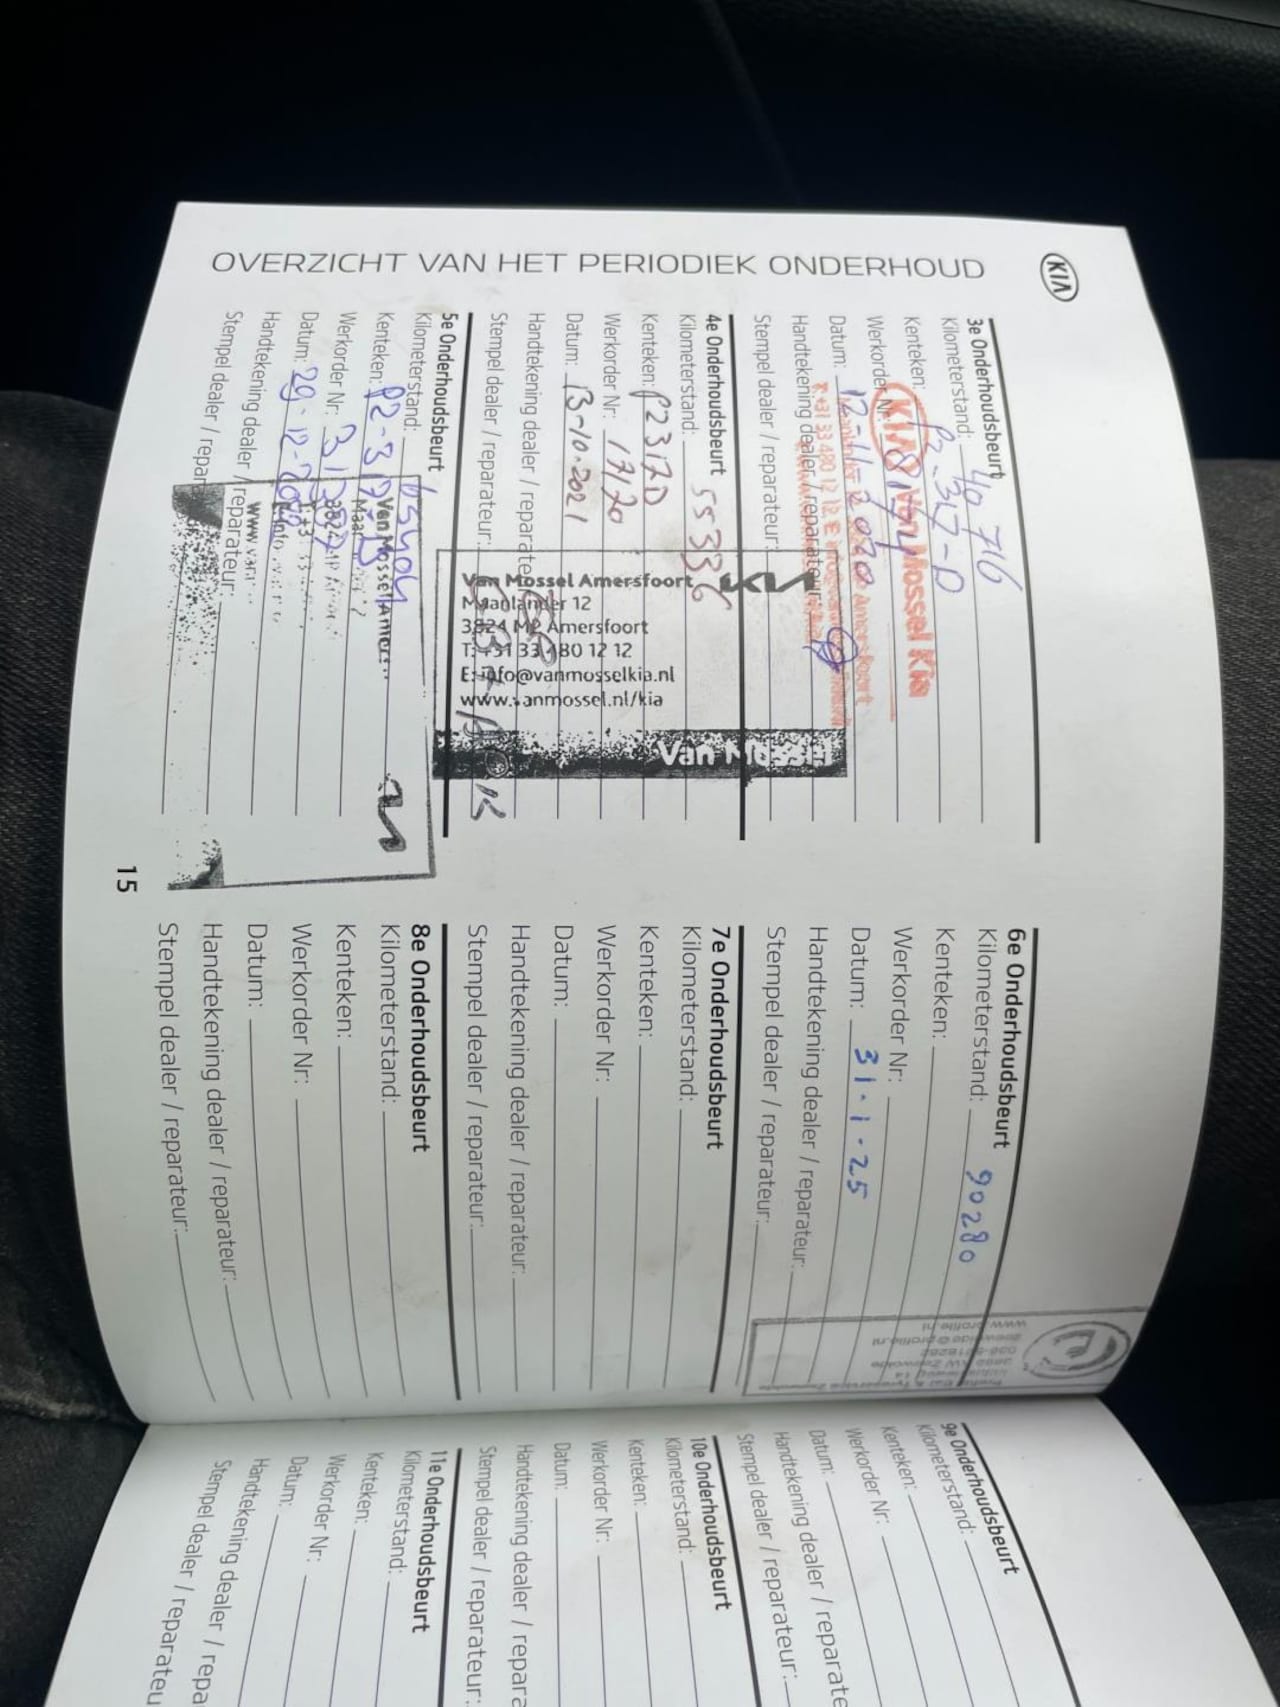 KIA
OVERZICHT VAN HET PERIODIEK ONDERHOUD
3e Onderhoudsbeurt
Kilometerstand:
Kenteken: P2-317-D
Werkorder Nr:
Datum: 12-11-2020
Handtekening dealer / reparateur:
Stempel dealer / reparateur:
KIA Van Mossel Kia
T: +31 33 480 12 12 E
4e Onderhoudsbeurt
Kilometerstand: 55336
Kenteken: P2317D
Werkorder Nr: 17120
Datum: 13-10-2021
Handtekening dealer / reparateur:
Stempel dealer / reparateur:
KIA
Van Mossel Amersfoort
Maanlander 12
3824 MP Amersfoort
T: +31 33 480 12 12
E: info@vanmosselkia.nl
www.vanmossel.nl/kia
Van Mossel
5e Onderhoudsbeurt
Kilometerstand:
Kenteken:
Werkorder Nr:
Datum: 29-12-
Handtekening dealer / reparateur:
Stempel dealer / reparateur:
Van Mossel
15
6e Onderhoudsbeurt
Kilometerstand: 90280
Kenteken:
Werkorder Nr:
Datum: 31-1-25
Handtekening dealer / reparateur:
Stempel dealer / reparateur:
www.profile.nl
zeewolde@profile.nl
7e Onderhoudsbeurt
Kilometerstand:
Kenteken:
Werkorder Nr:
Datum:
Handtekening dealer / reparateur:
Stempel dealer / reparateur:
8e Onderhoudsbeurt
Kilometerstand:
Kenteken:
Werkorder Nr:
Datum:
Handtekening dealer / reparateur:
Stempel dealer / reparateur:
9e Onderhoudsbeurt
Kilometerstand:
Kenteken:
Werkorder Nr:
Datum:
Handtekening dealer / reparate
Stempel dealer / reparateur:
10e Onderhoudsbeurt
Kilometerstand:
Kenteken:
Werkorder Nr:
Datum:
Handtekening dealer / repara
Stempel dealer / reparateur:
11e Onderhoudsbeurt
Kilometerstand:
Kenteken:
Werkorder Nr:
Datum:
Handtekening dealer / repa
Stempel dealer / reparateu